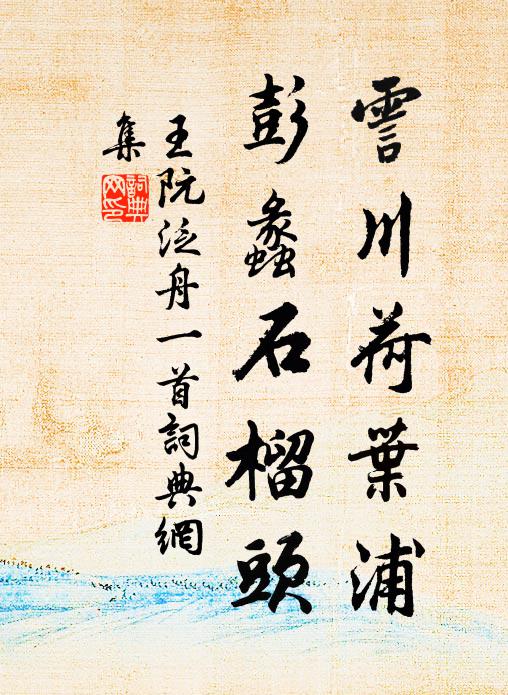 霅川荷葉浦
彭蠡石榴頭
王阮泛舟一首詞典網
集
詞典
网印